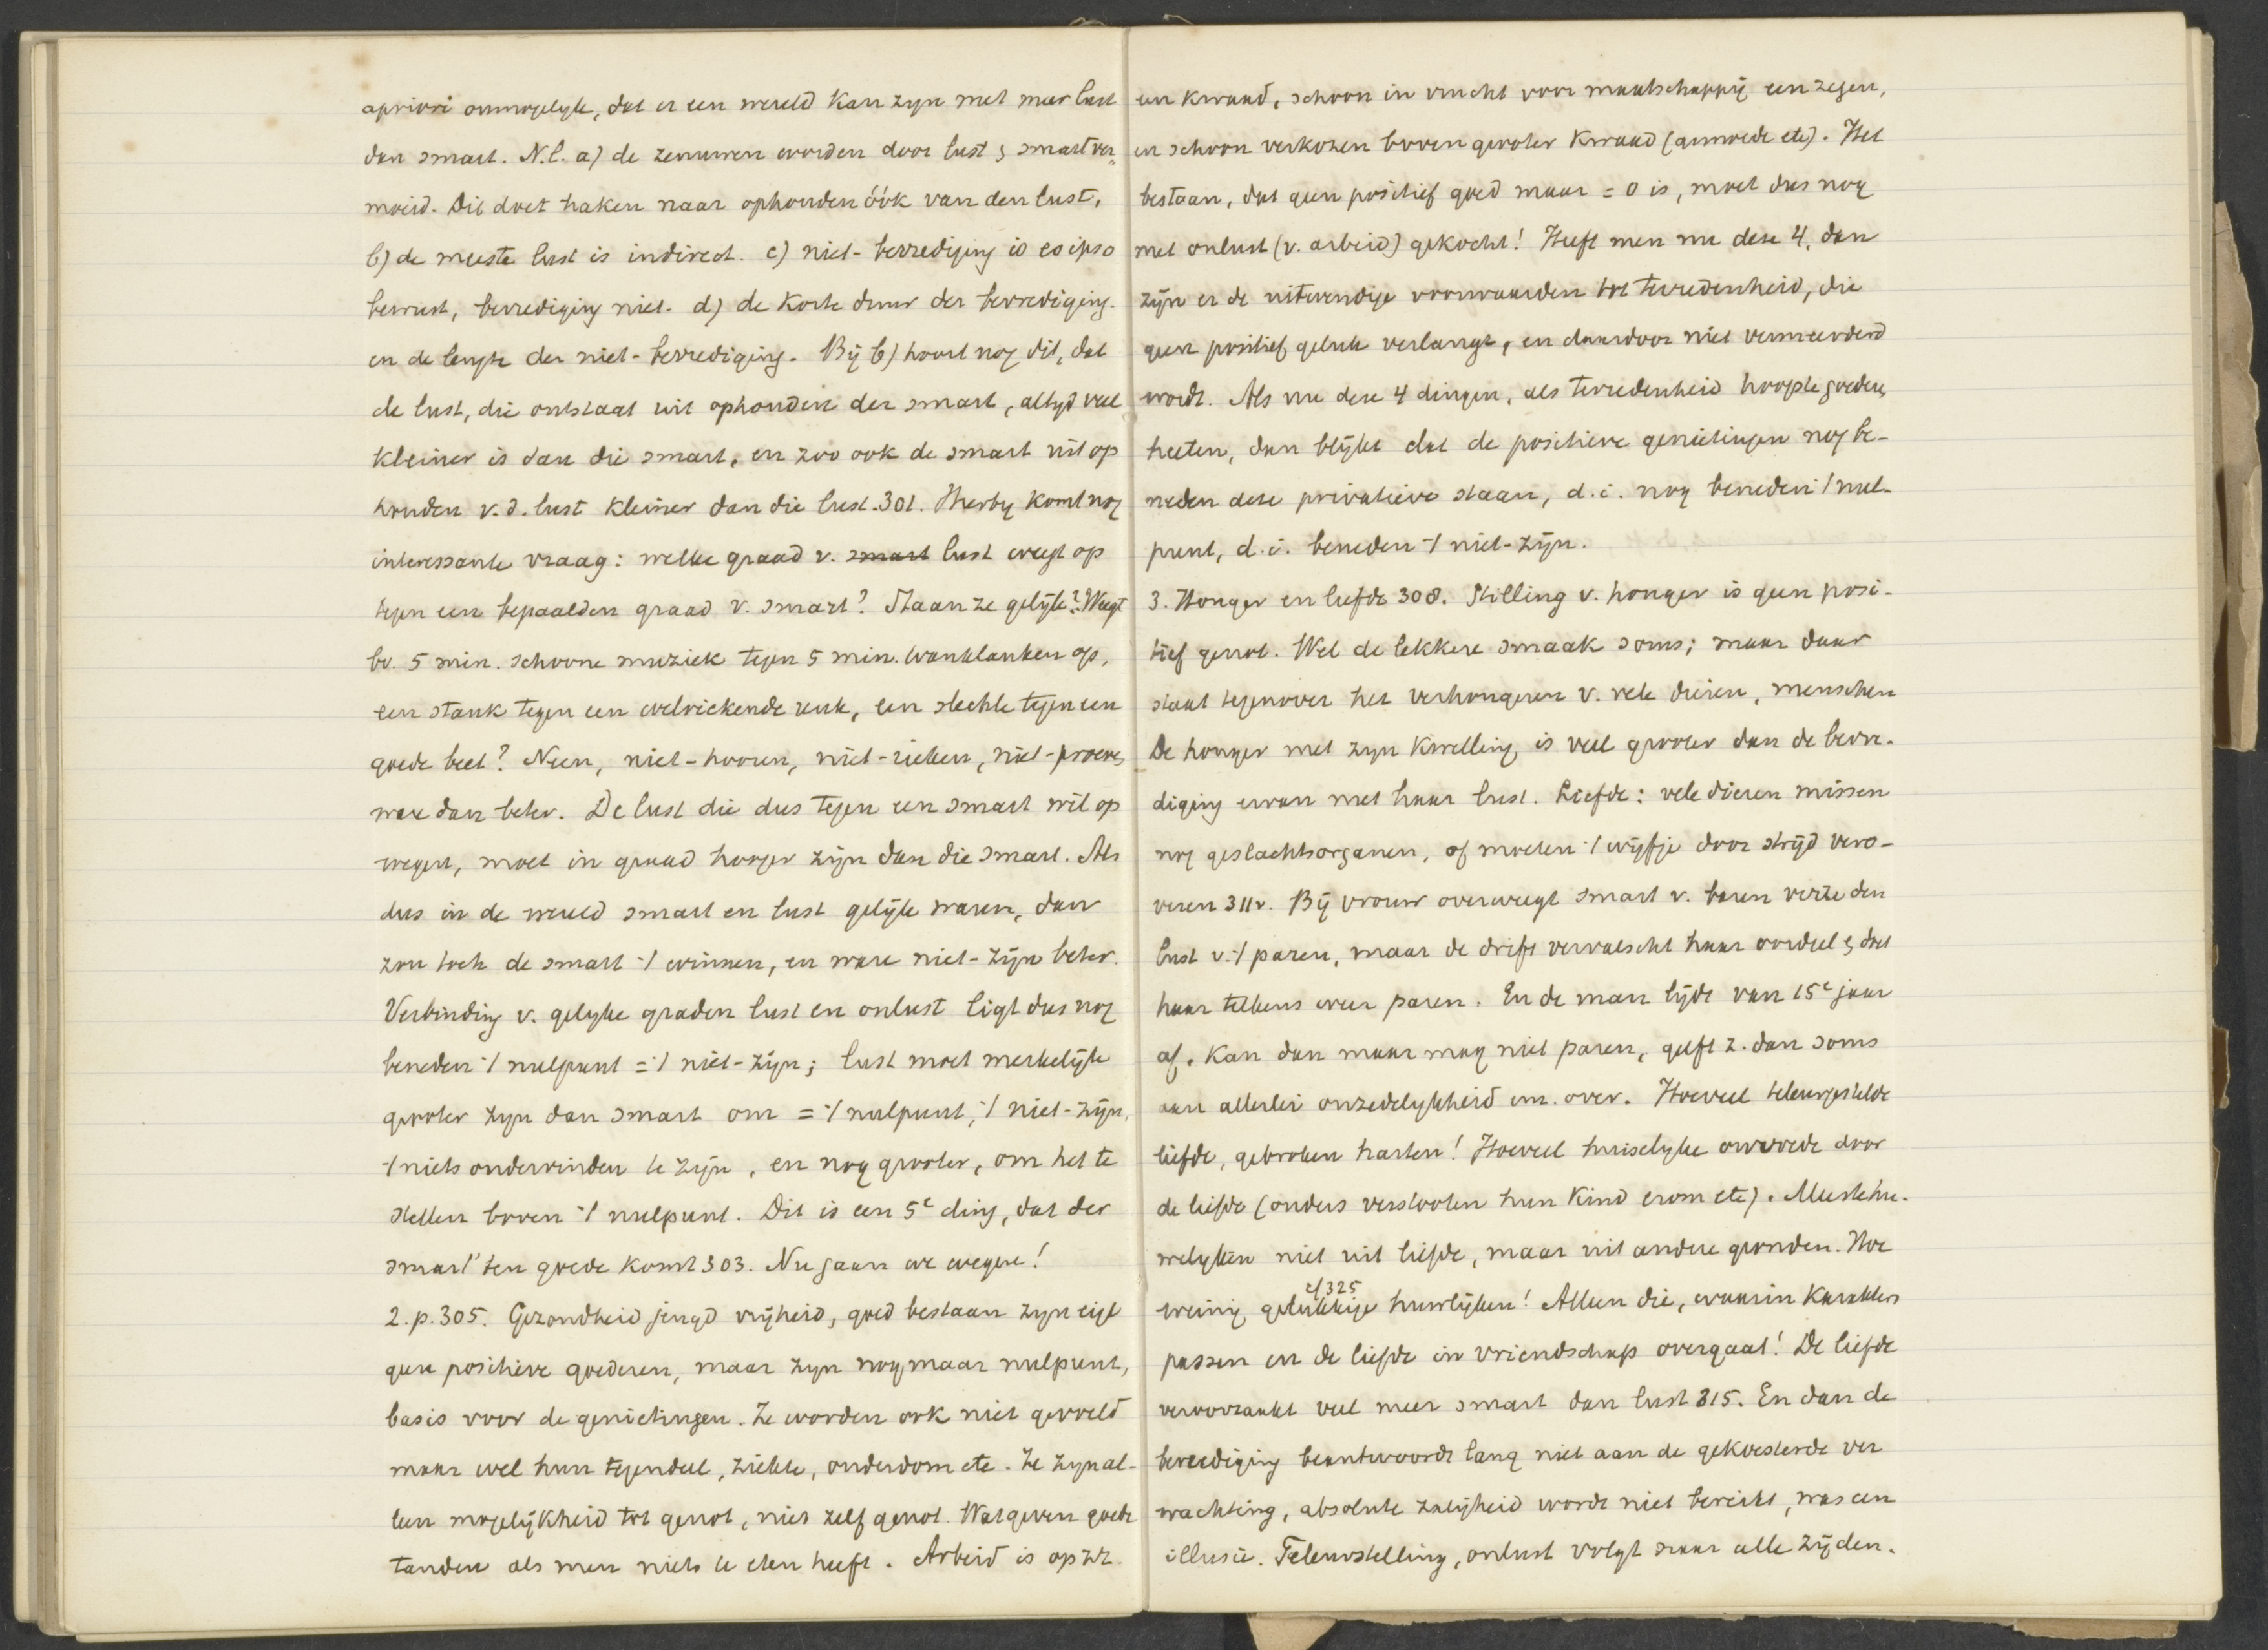 apriori onmogelyk, dat er een wereld kan zyn met meer lust
dan smart. N.l. a) de zenuwen worden door lust & smart ver„
moeid. Dit doet haken naar ophouden óók van den lust.
b) de meeste lust is indirect. c) niet-bevrediging is eo ipso
bewust, bevrediging niet. d) de korte duur der bevrediging.
en de lengte der niet-bevrediging. Bij b) hoort nog dit, dat
de lust, die ontstaat uit ophouden der smart, altyd veel
kleiner is dan die smart, en zoo ook de smart uit op
houden v.d. lust kleiner dan die lust. 301. Hierby komt nog
interessante vraag: welke graad v. smart lust weegt op
tegen een bepaalden graad v. smart? Staan ze gelijk? Weegt
bv. 5 min. schoone muziek tegen 5 min. wanklanken op,
een stank tegen een welriekende reuk, een slechte tegen een
goede beet? Neen, niet-hooren, niet-rieken, niet-proeven
ware dan beter. De lust die dus tegen een smart wil op
wegen, moet in graad hooger zijn dan die smart. Als
dus in de wereld smart en lust gelijk waren, dan
zou toch de smart ·/ winnen, en ware niet-zijn beter.
Verbinding v. gelyke graden lust en onlust ligt dus nog
beneden ·/ nulpunt = ·/ niet-zijn; lust moet merkelijk
grooter zyn dan smart om = ·/ nulpunt, ·/ niet-zijn,
·/ niets ondervinden te zijn, en nog grooter, om het te
stellen boven ·/ nulpunt. Dit is een 5e ding, dat der
smart ten goede komt 303. Nu gaan we wegen!
2. p. 305. Gezondheid jeugd vrijheid, goed bestaan zyn eigl
geen positieve goederen, maar zyn nog maar nulpunt,
basis voor de genietingen. Ze worden ook niet gevoeld
maar wel hun tegendeel, ziekte, ouderdom etc. Ze zyn al-
leen mogelijkheid tot genot, niet zelf genot. Wat geven goede
tanden als men niets te eten heeft. Arbeid is op zz.
een kwaad, schoon in vrucht voor maatschappij een zegen,
en schoon verkozen boven grooter kwaad (armoede etc). Het
bestaan, dat geen positief goed maar = 0 is, moet dus nog
met onlust (v. arbeid) gekocht! Heeft men nu deze 4, dan
zijn er de uitwendige voorwaarden tot tevredenheid, die
geen positief geluk verlangt, en daardoor niet vermeerderd
wordt. Als nu deze 4 dingen, als tevredenheid hoogste goederen
heeten, dan blijkt dat de positieve genietingen nog be-
neden deze privatieve staan, d.i. nog beneden ·/ nul-
punt, d.i. beneden ·/ niet-zijn.
3. Honger en liefde 308. Stilling v. honger is geen posi-
tief genot. Wel de lekkere smaak soms; maar daar
staat tegenover het verhongeren v. vele dieren, menschen
De honger met zyn kwelling is veel grooter dan de bevre-
diging ervan met haar lust. Liefde: vele dieren missen
nog geslachtsorganen, of moeten ·/ wijfje door strijd vero-
veren 311v. Bij vrouw overweegt smart v. baren verre den
lust v. ·/ paren, maar de drift vervalscht haar oordeel & doet
haar telkens weer paren. En de man lijdt van 15e jaar
af. Kan dan maar mag niet paren, geeft z. dan soms
aan allerlei onzedelykheid en. over. Hoeveel teleurgestelde
liefde, gebroken harten! Hoeveel huiselyke onvrede door
de liefde (ouders verstooten hun kind erom etc). Meeste hu-
welyken niet uit liefde, maar uit andere gronden. Hoe
cf 325
weinig gelukkige huwlijken! Alleen die, waarin karakters
passen en de liefde in vriendschap overgaat! De liefde
veroorzaakt veel meer smart dan lust 315. En dan de
bevrediging beantwoordt lang niet aan de gekoesterde ver
wachting, absolute zaligheid wordt niet bereikt, was een
illusie. Teleurstelling, onlust volgt naar alle zijden.